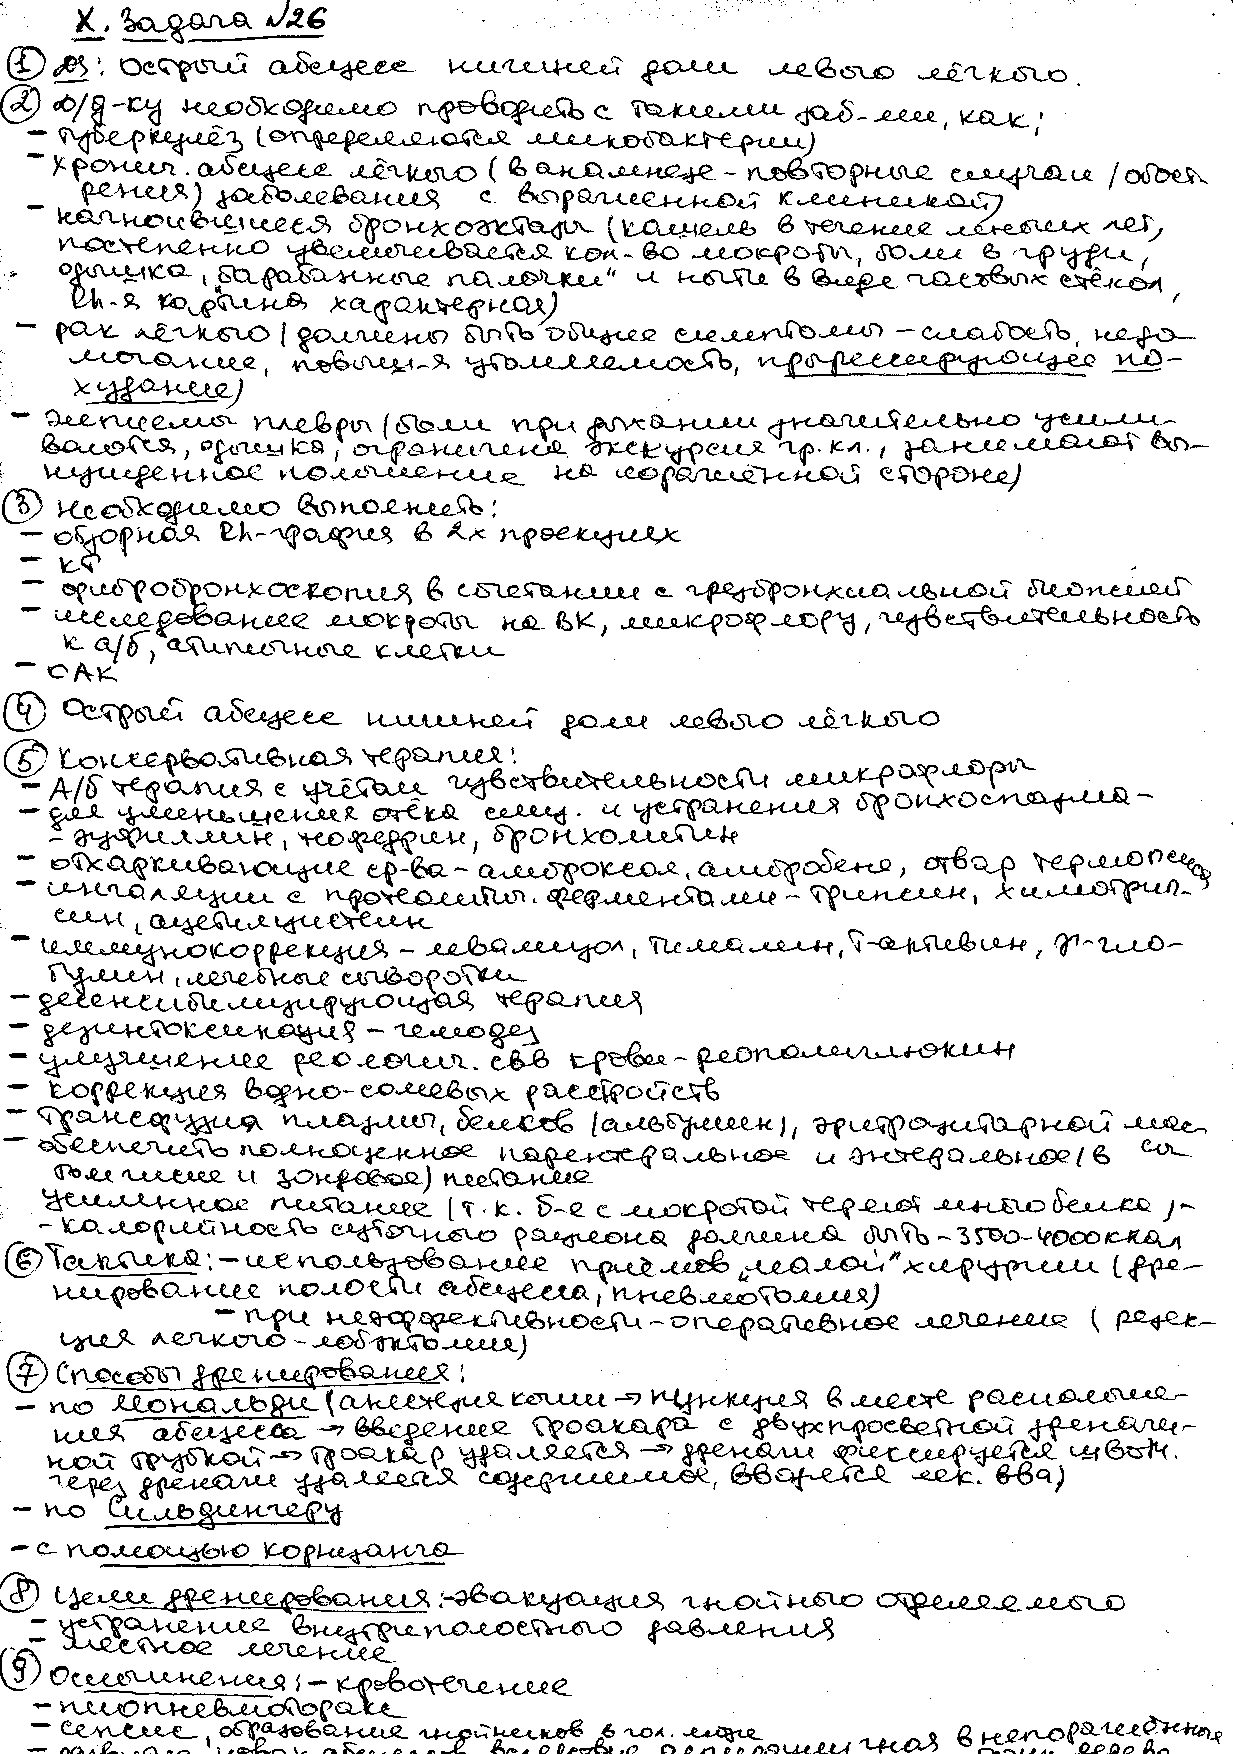 X. Задача №26
① Дз: Острый абсцесс нижней доли левого лёгкого.
② Д/д-ку необходимо проводить с такими заб-ми, как:
- туберкулёз (определяются микобактерии)
- хронич. абсцесс лёгкого (в анамнезе - повторные случаи /обост
рения) заболевания с выраженной клиникой)
- нагноившиеся бронхоэктазы (кашель в течение многих лет,
постепенно увеличивается кол-во мокроты, боли в груди,
одышка, "барабанные палочки" и ногти в виде часовых стёкол,
Rh-я картина характерная)
- рак лёгкого (должны быть общие симптомы - слабость, недо
могание, повыш-я утомляемость, прогрессирующее по-
худание)
- эмпиема плевры (боли при дыхании значительно усили
ваются, одышка, ограничена экскурсия гр. кл., занимают вы-
нужденное положение на поражённой стороне)
③ Необходимо выполнить:
- обзорная Rh-графия в 2х проекциях
- КТ
- фибробронхоскопия в сочетании с трезбронхиальной биопсией
- исследование мокроты на ВК, микрофлору, чувствительность
к а/б, атипичные клетки
- ОАК
④ Острый абсцесс нижней доли левого лёгкого
⑤ Консервативная терапия:
- А/б терапия с учётом чувствительности микрофлоры
- для уменьшения отёка слиз. и устранения бронхоспазма -
- эуфиллин, теофедрин, бронхолитин
- отхаркивающие ср-ва - амброксол, амбробене, отвар термопсиса
- ингаляции с протеолитич. ферментами - трипсин, химотрип-
син, ацетилцистеин
- иммунокоррекция - левамизол, тималин, Т-активин, γ-гло-
булин, лечебные сыворотки
- десенсибилизирующая терапия
- дезинтоксикация - гемодез
- улучшение реологич. свв крови - реополиглюкин
- коррекция водно-солевых расстройств
- трансфузия плазмы, белков (альбумин), эритроцитарной мас
- обеспечить полноценное парентеральное и энтеральное (в
том числе и зондовое) питание
усиленное питание (т.к. б-е с мокротой теряют много белка)-
- калорийность суточного рациона должна быть - 3500-4000 ккал
⑥ Тактика: - использование приёмов "малой" хирургии (дре-
нирование полости абсцесса, пневмотомия)
- при неэффективности - оперативное лечение (резек-
ция легкого - лобэктомия)
⑦ Способы дренирования:
- по Мональди (анестезия кожи → пункция в месте расположе-
ния абсцесса → введение троакара с двухпросветной дренаж-
ной трубкой → троакар удаляется → дренаж фиксируется швом.
Через дренаж удаляется содержимое, вводятся лек. вва)
- по Сильдингеру
- с помощью корнцанга
⑧ Цели дренирования: - эвакуация гнойного отделяемого
- устранение внутриполостного давления
- местное лечение
⑨ Осложнения: - кровотечение
- пиопневмоторакс
- сепсис, образование гнойников в гол. мозге